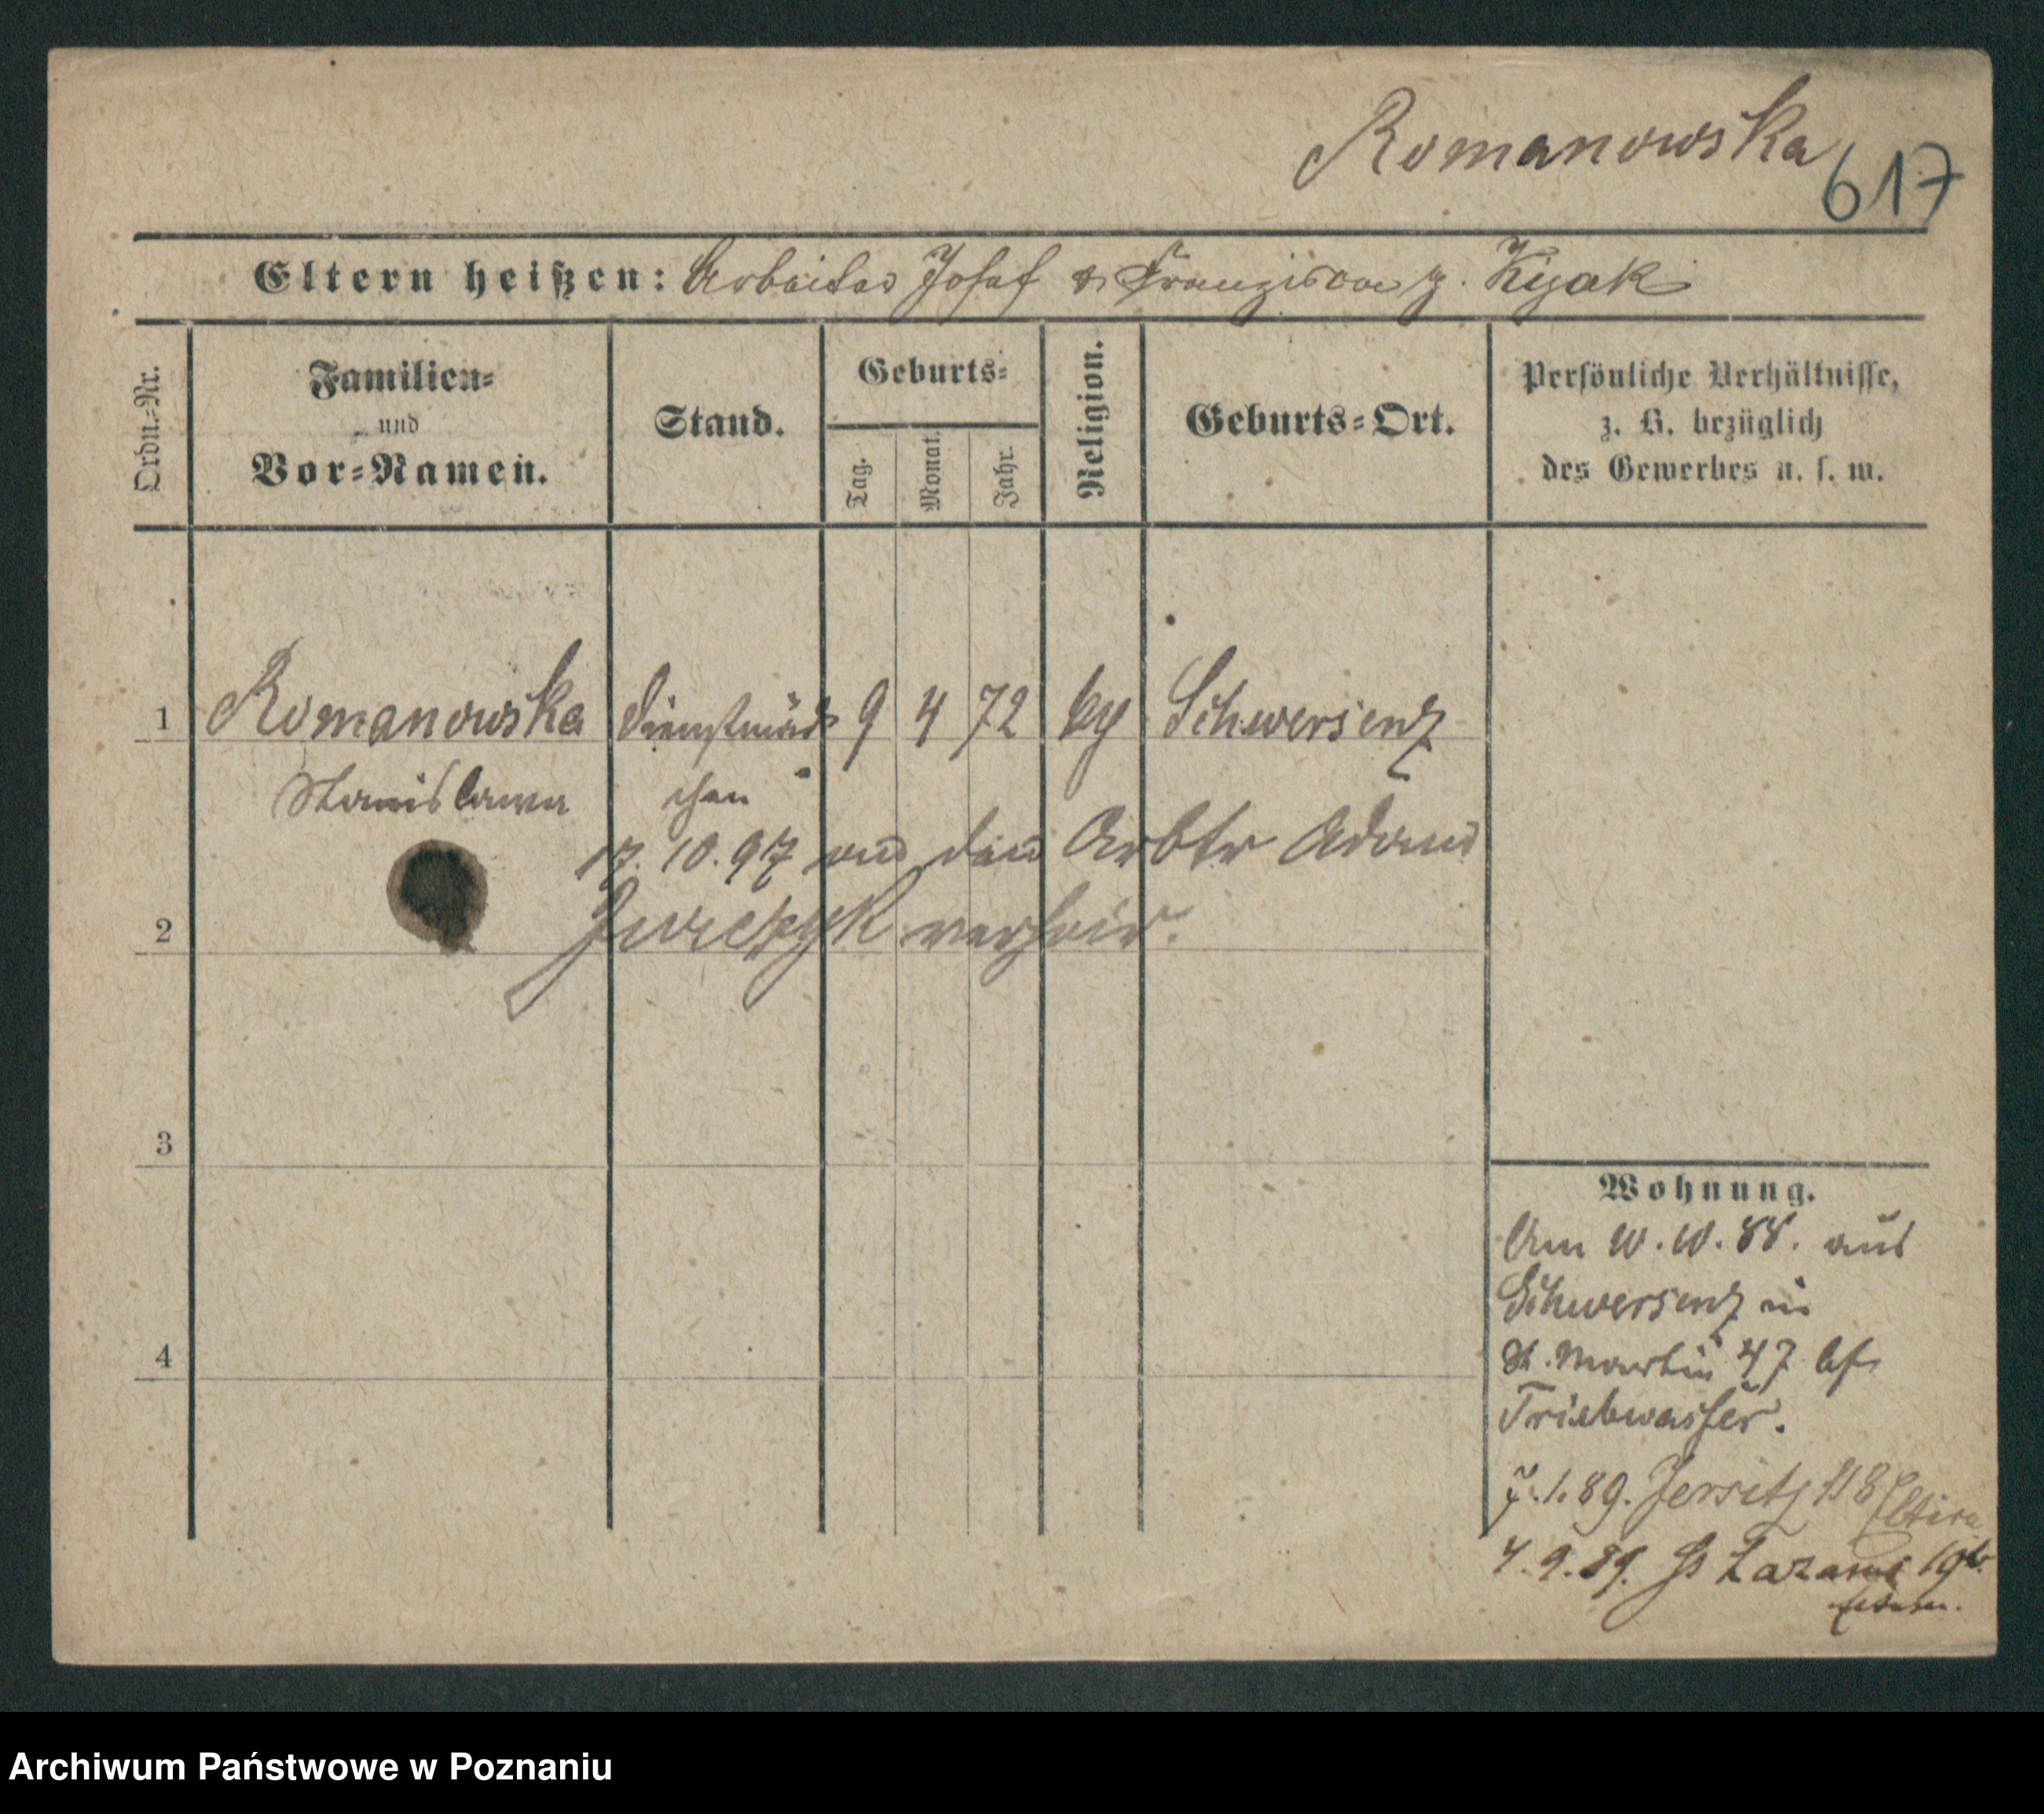 Romanowska
617
Eltern heißen: Arbeiter Josef & Franziska g. Kijak
Ordn.-Nr.
Familien-
und
Vor-Namen.
Stand.
Geburts-
Tag.
Monat.
Jahr.
Religion.
Geburts-Ort.
Persönliche Verhältnisse,
z. B. bezüglich
des Gewerbes u. s. w.
1 Romanowska Dienstmäd 9 4 72 Schwersenz
Stanislawa chen
17. 10. 97 an den Arbtr Adam
2 Jurczyk verheir.
3
4
Wohnung.
Am aus
Schwersenz in
St. Martin 47 bei
Triebwasser.
7.1.89. Jersitz 118 Eltern
4.9.89. St Lazarus
Eltern.
Archiwum Państwowe w Poznaniu